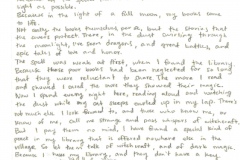 light as possible.
Because in the light of a full moon, my books come
to life.
Not really the books themselves, per se, but the
the event protect them, in the dust swirling through
the moonlight, I've seen dragons, and great battles, and
epic tales of love and honor.
The spell was weak at first, when I found the library.
Because these poor books had been neglected for so long
that they were reluctant to share. The more I read
and showed I cared, the more they showed their magic.
Now I spend every night here, reading aloud and watching
the dusk while my cat sleeps curled up in my lap. There's
not much else I look forward to, and those who know me, or
know of me, call me strange and pass whispers of witchcraft.
But I pay them no mind, I have found a special kind of
peace in my library that is offered nowhere else in the
village. So let them talk of witchcraft, and of dark magic.
Because I have my library, and they don't have a